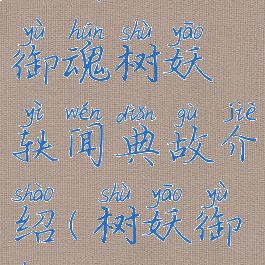 yù hún shù yāo
御魂树妖
yì wén diǎn gù jiè
轶闻典故介
shào shù yāo yù
绍(树妖御